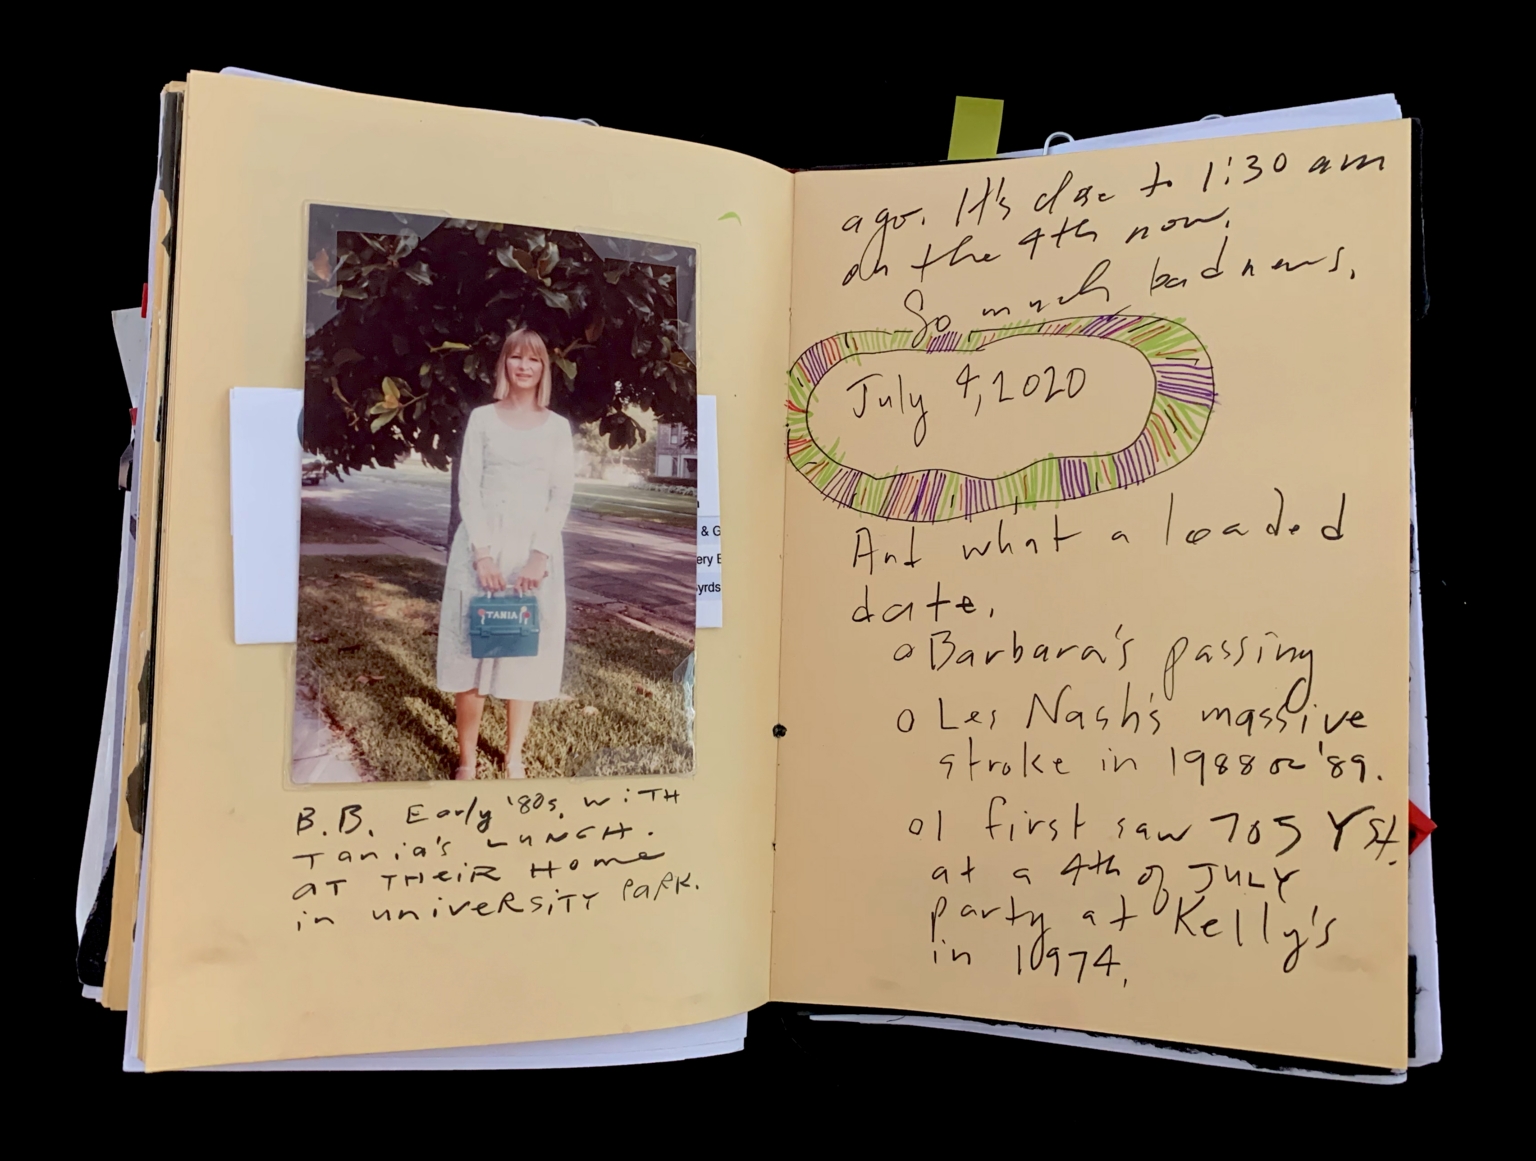 TANIA
& G
ery E
yrds
B.B. Early '80s, WiTH
Tania's LUNCH.
AT THEiR HOme
in UniVeRSiTY PARK.
ago. It's close to 1:30 am
on the 4th now.
So much bad news.
July 4, 2020
And what a loaded
date.
o Barbara's passing
o Les Nash's massive
stroke in 1988 or '89.
o I first saw 705 Yst.
at a 4th of JULY
party at Kelly's
in 1974.